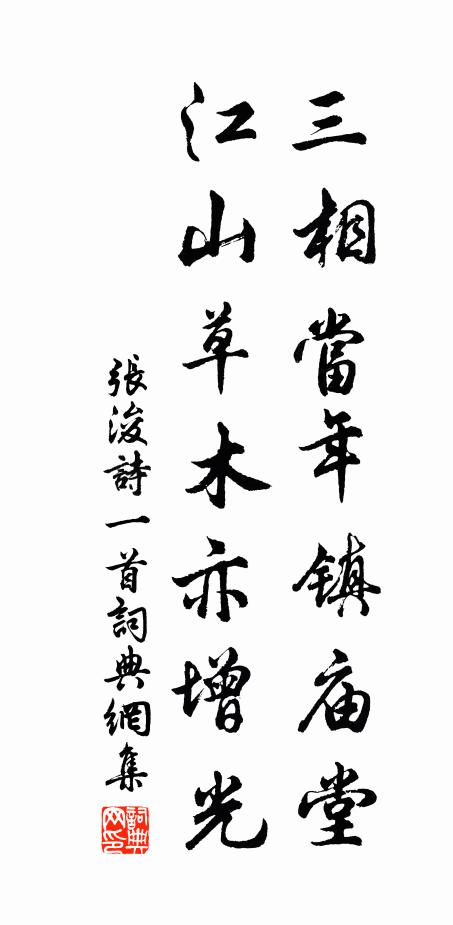 三相當年镇庙堂
江山草木亦增光
張浚詩一首詞典網集
詞典网印